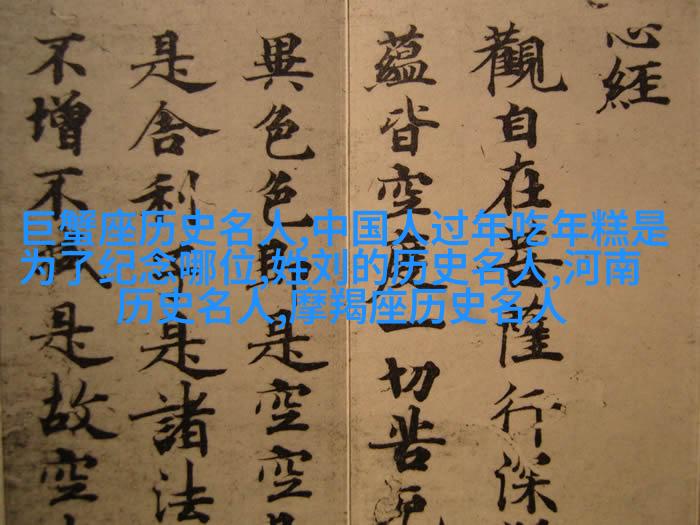 心經
觀自在菩薩行深
蘊皆空度一切苦厄
異色色即是空空
是舍利子是諸法
不增不減是故空
巨蟹座历史名人,中国人过年吃年糕是
为了纪念哪位,姓刘的历史名人,河南
历史名人,摩羯座历史名人